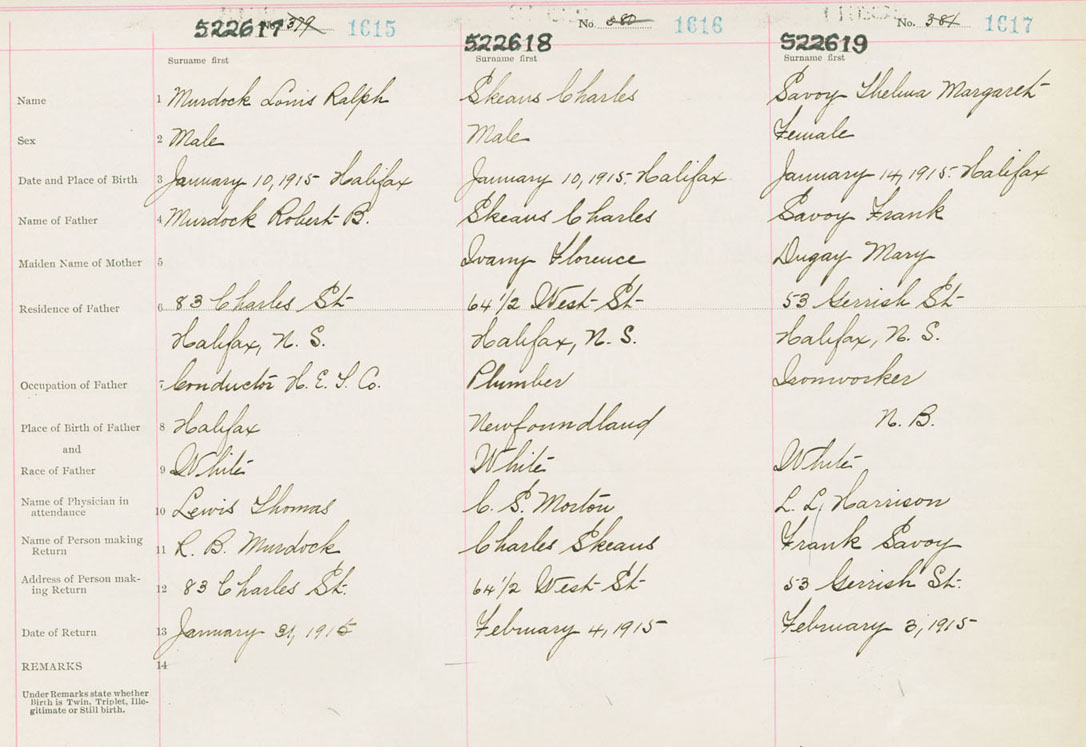 522617 379 1615 No. 380 1616 No. 381 1617
522618 522619
Surname first Surname first Surname first
Name 1 Murdock Louis Ralph Skeans Charles Savoy Thelma Margaret
Sex 2 Male Male Female
Date and Place of Birth 3 January 10, 1915 Halifax January 10, 1915. Halifax January 14, 1915. Halifax
Name of Father 4 Murdock Robert B. Skeans Charles Savoy Frank
Maiden Name of Mother 5 Ivamy Florence Dugay Mary
Residence of Father 6 83 Charles St 64 1/2 West St 53 Gerrish St
Halifax, N. S. Halifax, N. S. Halifax, N. S.
Occupation of Father 7 Conductor H. E. T. Co. Plumber Ironworker
Place of Birth of Father 8 Halifax Newfoundland N. B.
and
Race of Father 9 White White White
Name of Physician in
attendance 10 Lewis Thomas C. S. Morton L. L. Harrison
Name of Person making
Return 11 R. B. Murdock Charles Skeans Frank Savoy
Address of Person mak-
ing Return 12 83 Charles St. 64 1/2 West St 53 Gerrish St.
Date of Return 13 January 31, 1915 February 4, 1915 February 3, 1915
REMARKS 14
Under Remarks state whether
Birth is Twin, Triplet, Ille-
gitimate or Still birth.